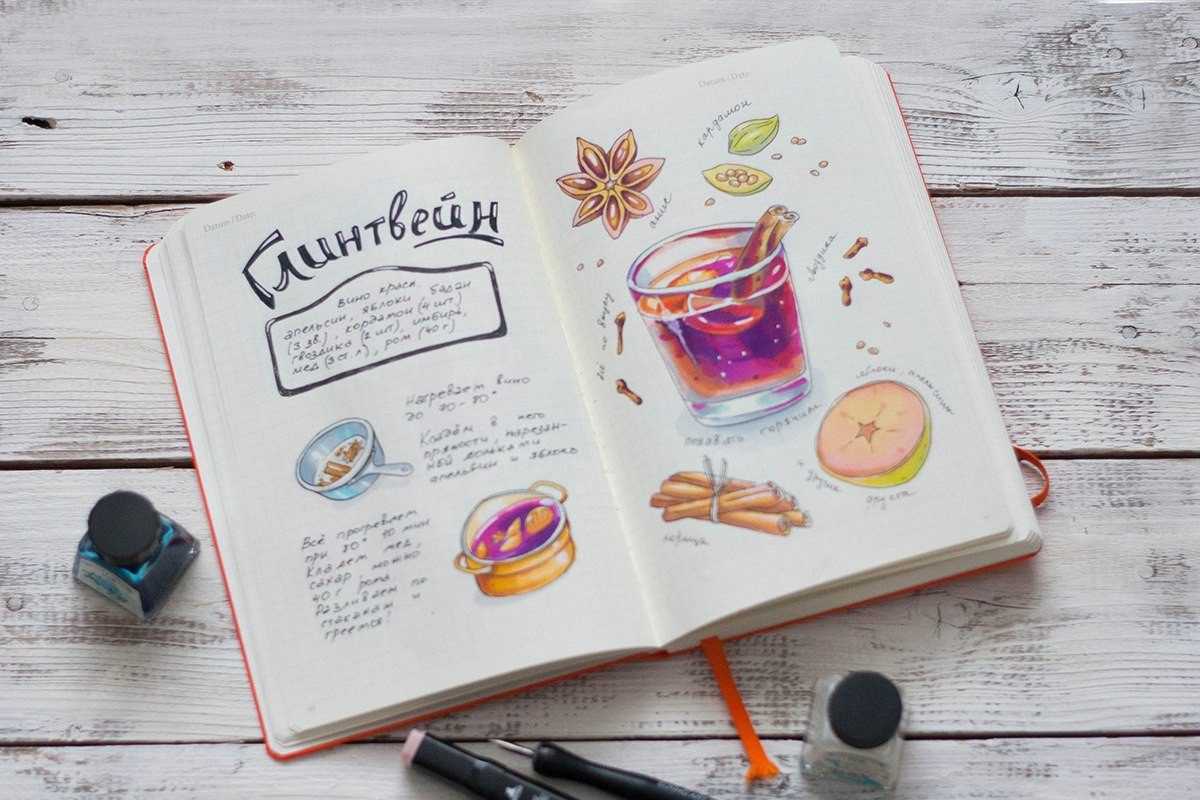 Datum / Date:
Глинтвейн
вино красн. бадян
апельсин, яблоки
(3 зв.), кордамон (4 шт.)
гвоздика (2 шт), имбирь,
мед (3 ст. л), ром (40 г)
Нагреваем вино
до 70-80°
Кладём в него
пряности, нарезан-
ный дольками
апельсин и яблоко
Всё прогреваем
при 80° 10 мин
Кладем мед,
сахар, можно
40 г рома.
Разливаем по
стаканам и
греемся!
Datum / Date:
кардамон
анис
гвоздика
всё по вкусу
подавать горячим
яблоки, апельсин
и другие
фрукты
корица